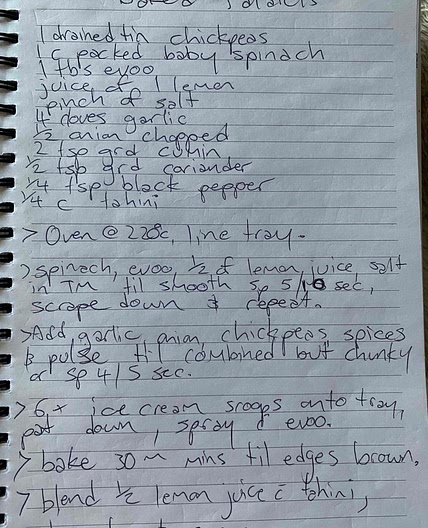 Baked Falafels
1 drained tin chickpeas
1 c packed baby spinach
1 tbs evoo
juice of 1 lemon
pinch of salt
4 cloves garlic
1/2 onion chopped
2 tsp grd cumin
1/2 tsp grd coriander
1/4 tsp black pepper
1/4 c tahini
> Oven @ 220c, line tray.
> spinach, evoo, 1/2 of lemon juice, salt
in TM til smooth sp 5/10 sec,
scrape down & repeat.
> Add garlic, onion, chickpeas, spices
& pulse til combined but chunky
or sp 4/5 sec.
> 6 x ice cream scoops onto tray,
pat down, spray evoo.
> bake 30 mins til edges brown.
> blend 1/2 lemon juice c tahini,